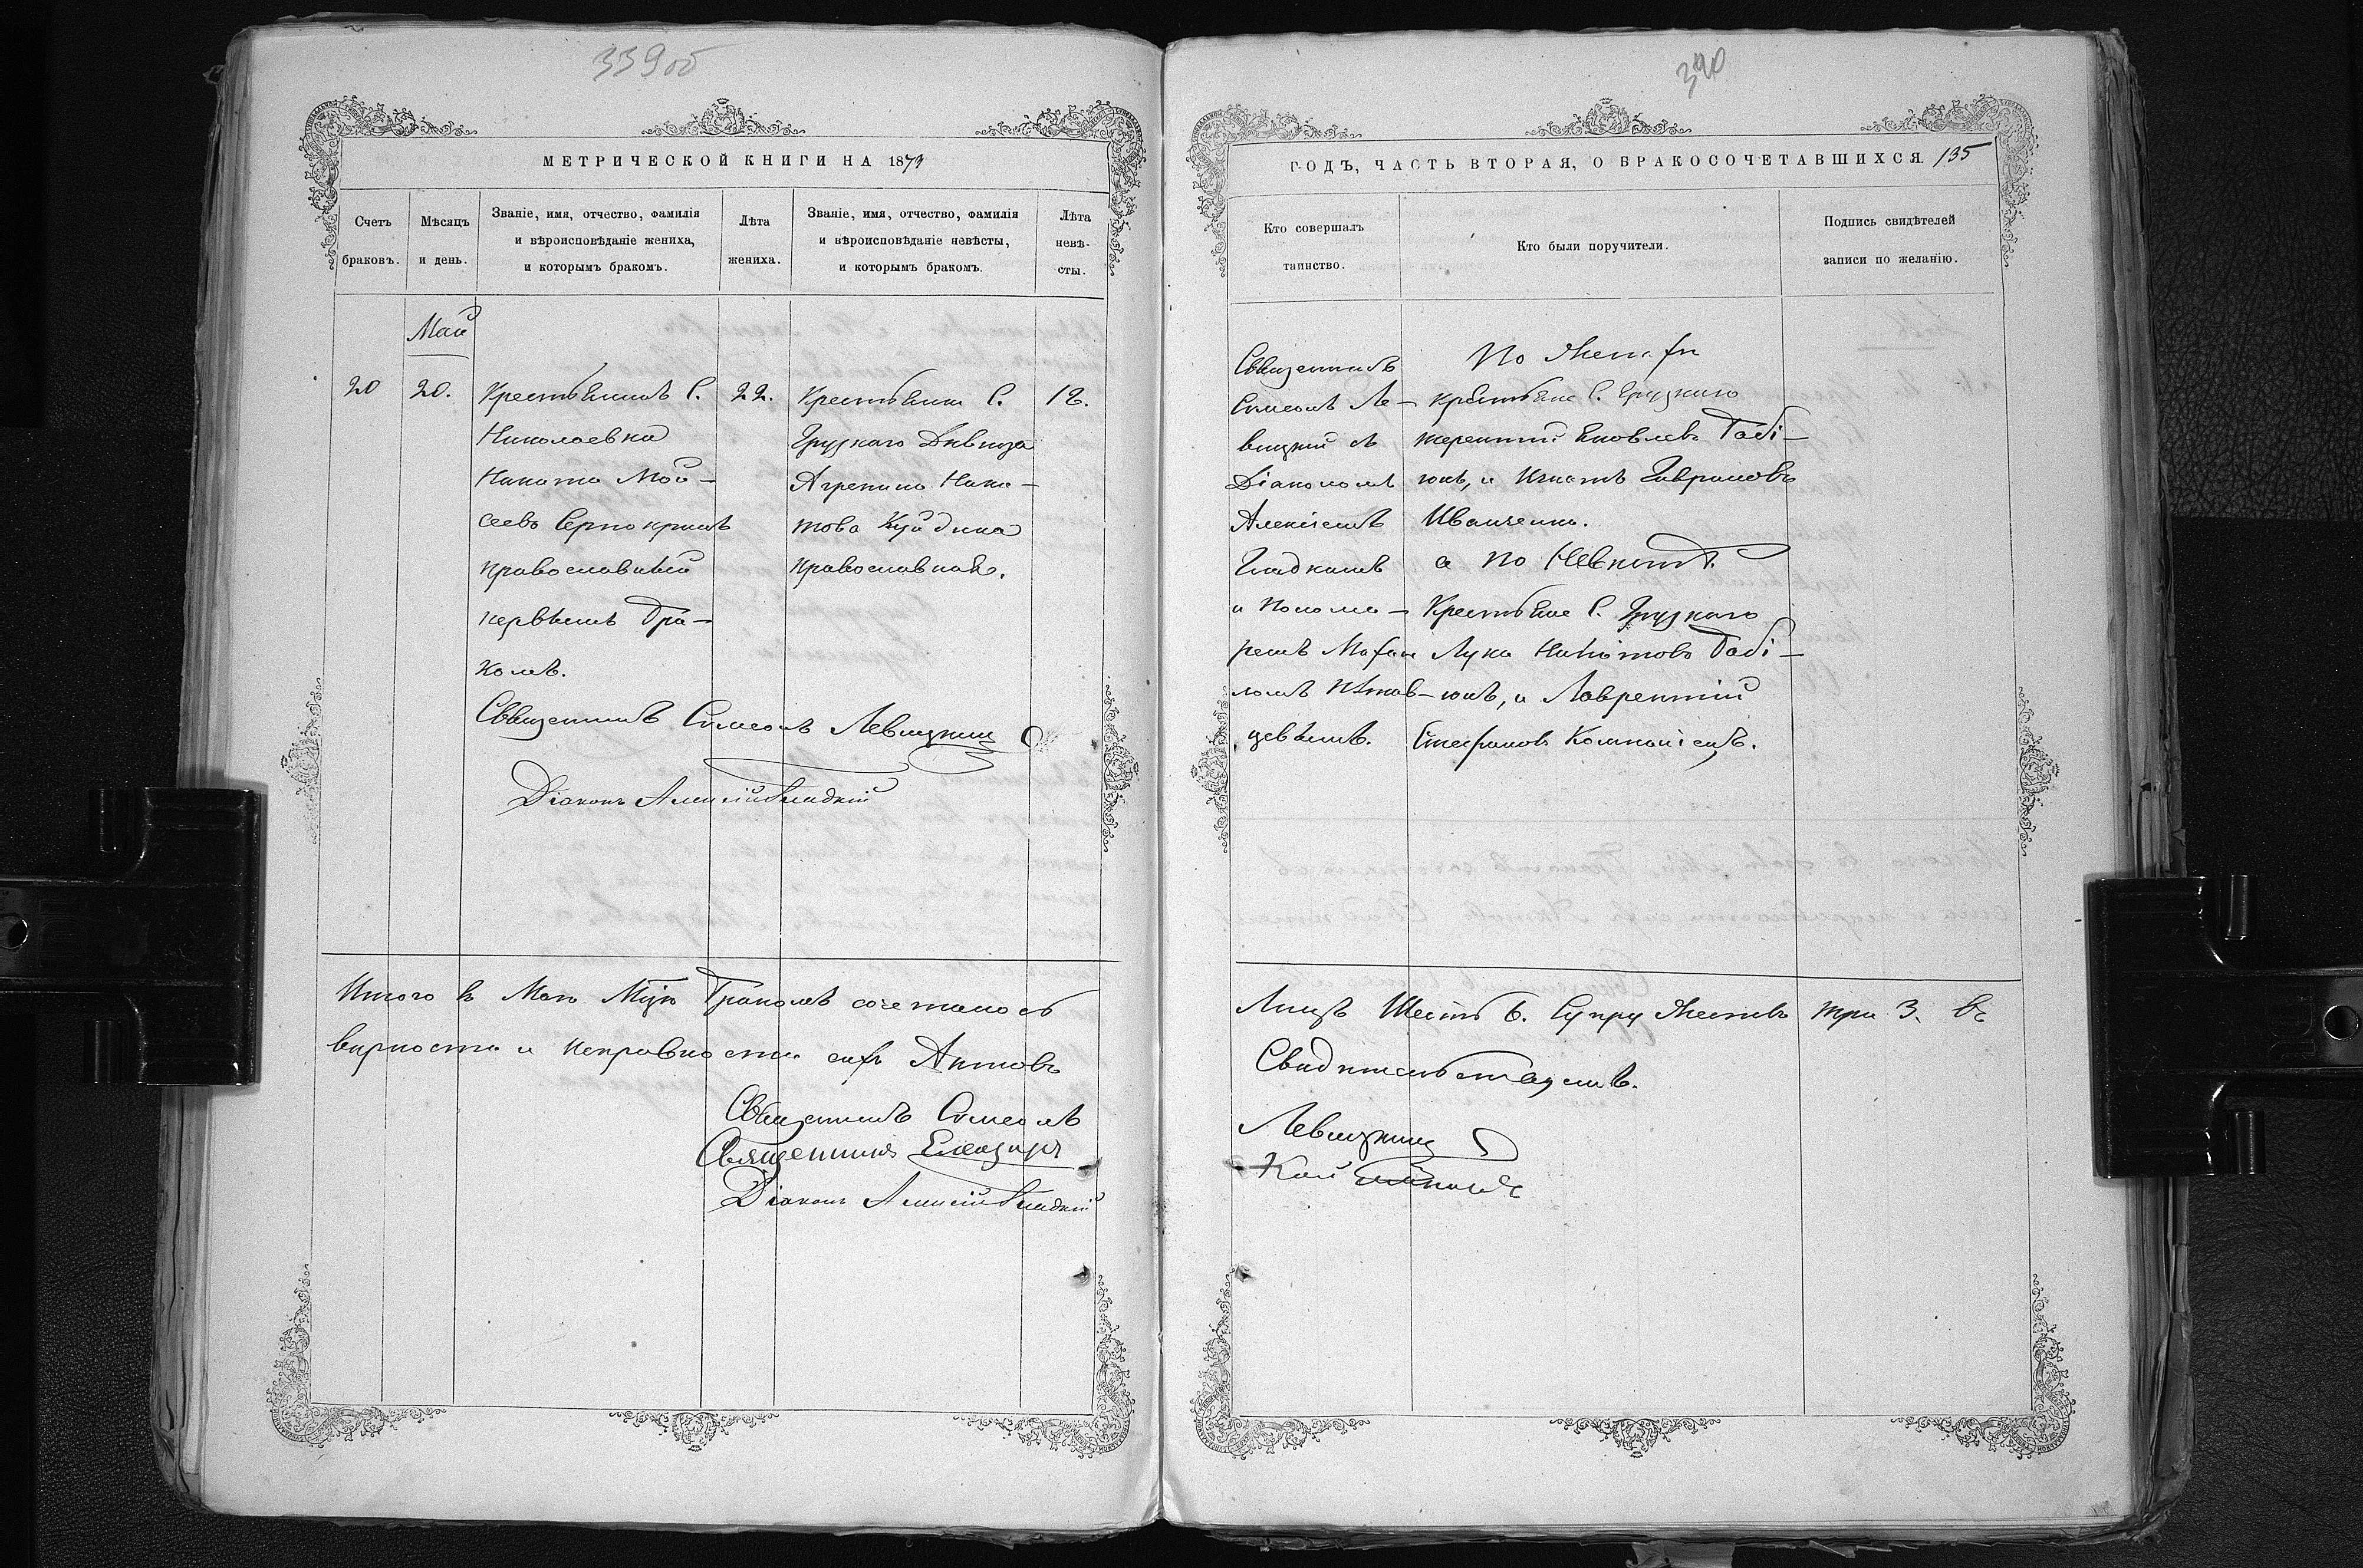 339об
МЕТРИЧЕСКОЙ КНИГИ НА 1879
Счетъ браковъ.
Мѣсяцъ и день.
Званіе, имя, отчество, фамилія
и вѣроисповѣданіе жениха,
и которымъ бракомъ.
Лѣта жениха.
Званіе, имя, отчество, фамилія
и вѣроисповѣданіе невѣсты,
и которымъ бракомъ.
Лѣта невѣ-
сты.
Май
20
20.
Крестьянинъ С.
Николаевки
Никита Мой-
сеевъ
православный
первымъ бра-
комъ.
22.
Крестьянка С.
Груzкаго Дѣвица
Агрепина Ники-
това
православная.
18.
Священникъ Симеонъ Левицкий
Діаконъ Алексій Гладкій
Итого в Маю Мцѣ Браковъ сочеталось
вѣрности и исправности сихъ Актовъ
Священникъ Симеонъ
Священникъ Елеазаръ
Діаконъ Алексій Гладкій
340
ГОДЪ, ЧАСТЬ ВТОРАЯ, О БРАКОСОЧЕТАВШИХСЯ. 135
Кто совершалъ
таинство.
Кто были поручители.
Подпись свидѣтелей
записи по желанію.
Священникъ
Симеонъ Ле-
вицкий съ
Діакономъ
Алексіемъ
Гладкимъ
и Понома-
ремъ
По Женихѣ
крестьяне С. Грузкаго
терентий Яковлевъ Бабі-
юкъ, и Игнатъ Гавриловъ
Иванченко.
а по Невѣстѣ.
Крестьяне С. Грузкаго
Лука Никитовъ Бабі-
юкъ, и Лаврентій
Стефановъ
Лицъ Шесть 6. Супружествъ три 3. въ
Свидѣтельствуемъ.
Левицкий